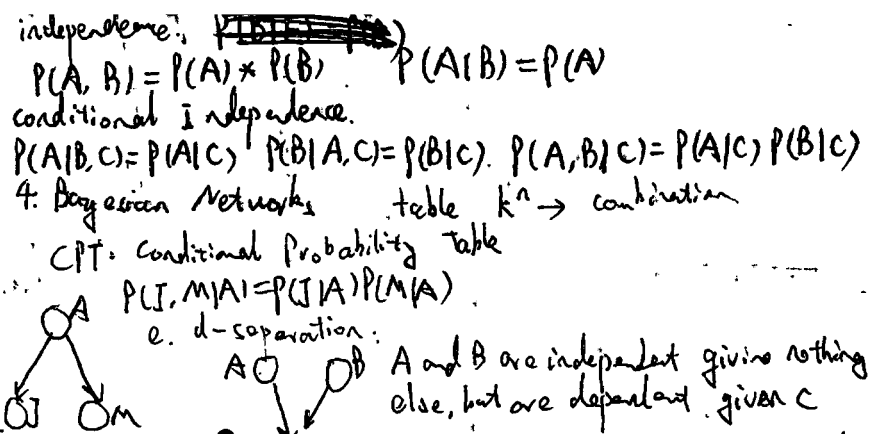 independence:
P(A, B) = P(A) * P(B) P(A|B) = P(A)
conditional Independence.
P(A|B,C)= P(A|C) P(B|A,C)= P(B|C). P(A,B|C)= P(A|C) P(B|C)
4. Bayesian Networks table k^n → combination
CPT. Conditional Probability Table
P(J, M|A)=P(J|A)P(M|A)
A
e. d-separation:
A B A and B are independent giving nothing
J M else, but are dependent given C